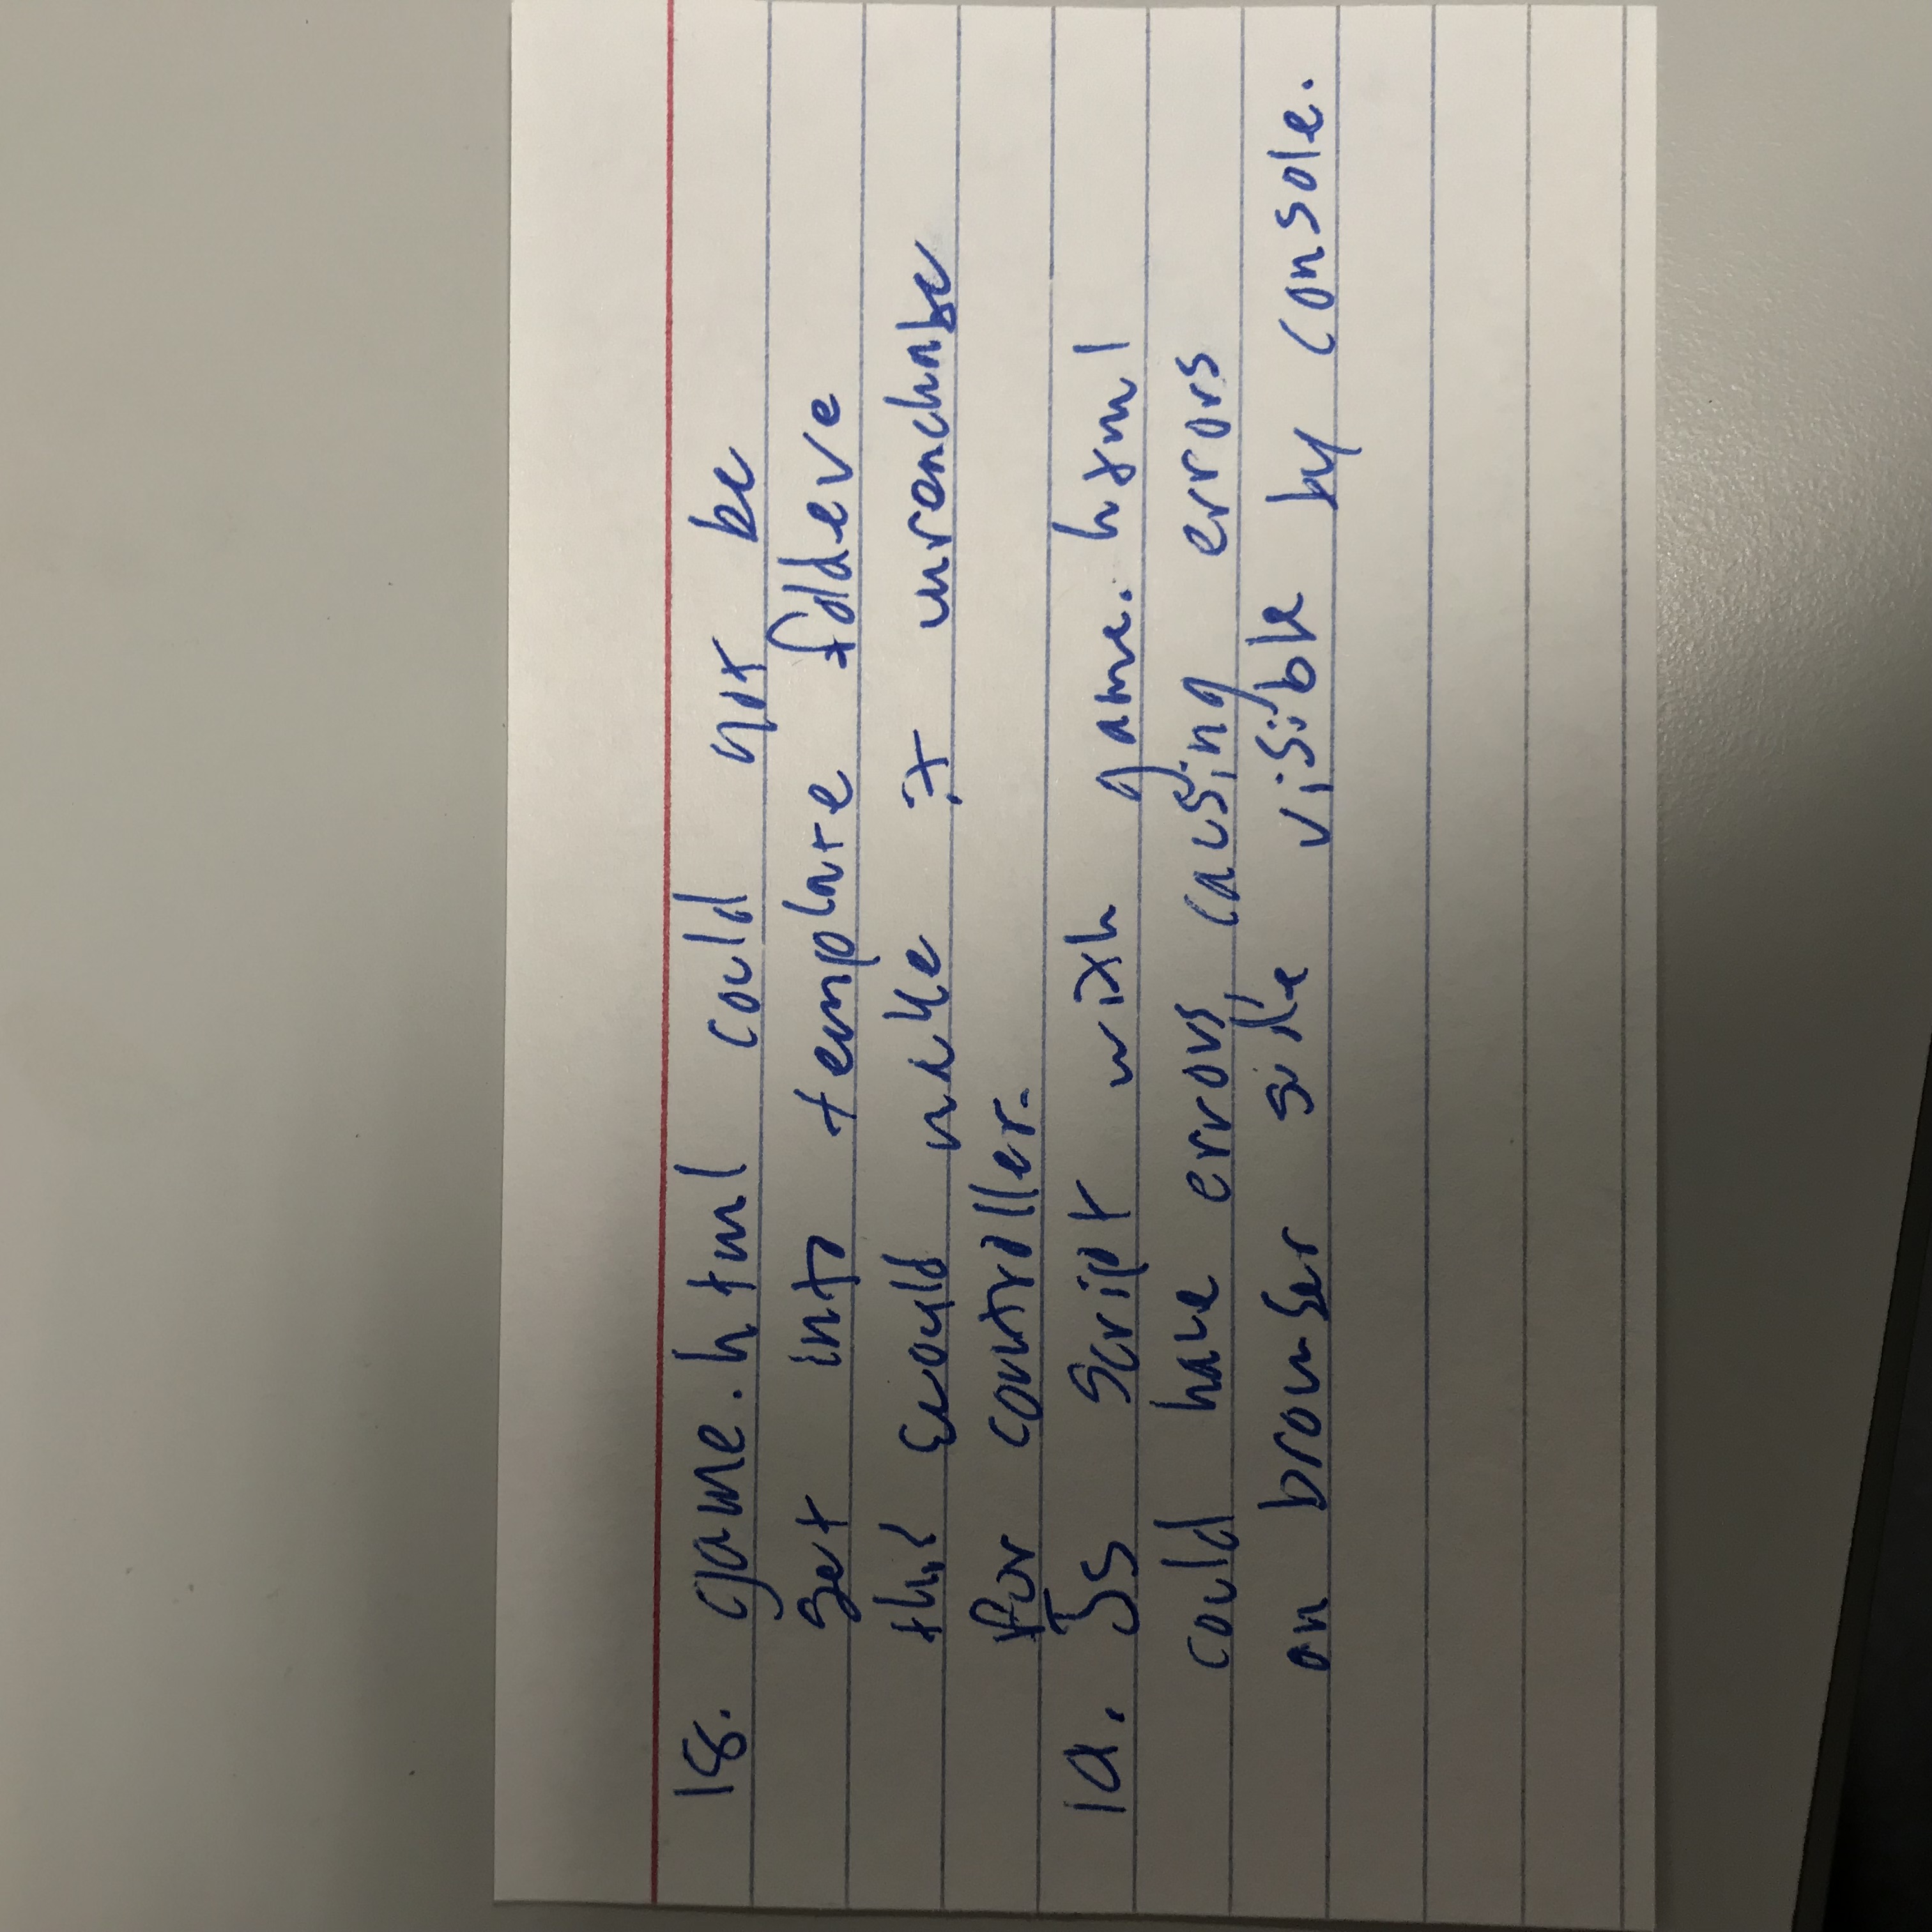 18. game.html could not be
set into template foldeve
this would make it unreachabe
for controller.
19. Js script with game.html
could have errors, causing errors
on browser side visible by console.